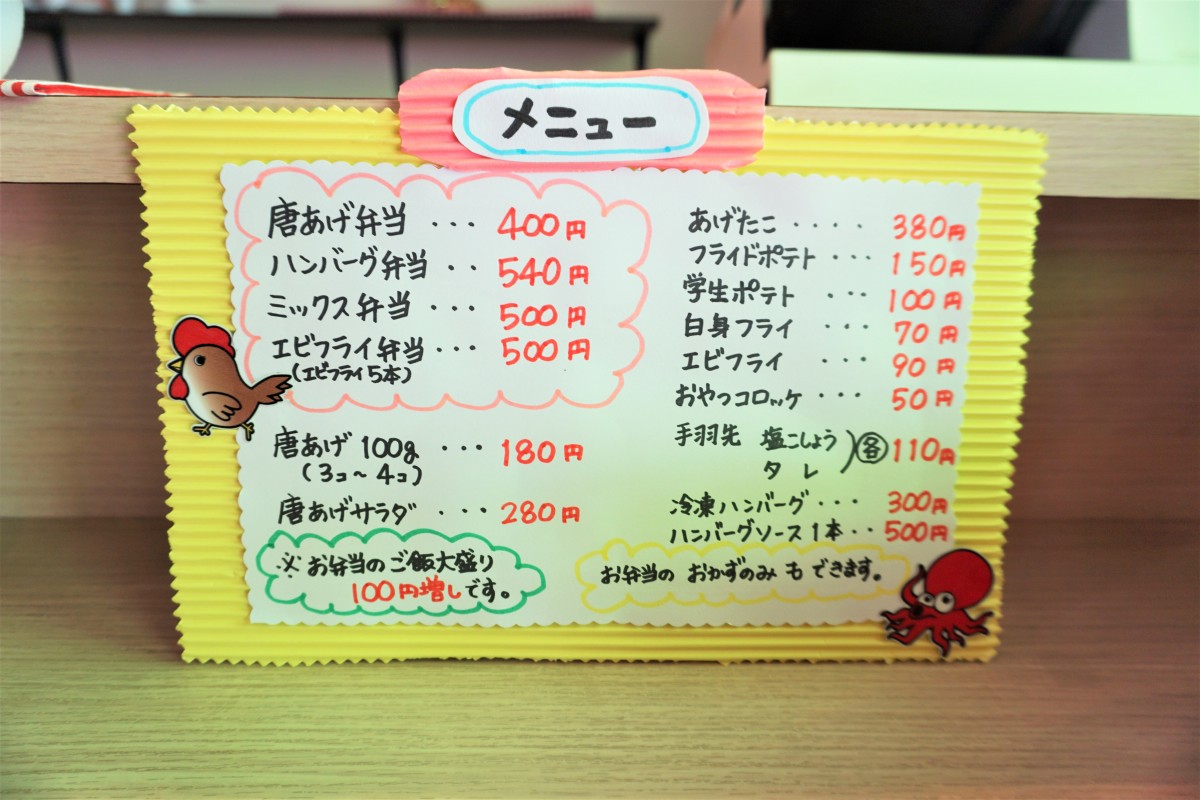 メニュー
唐あげ弁当 ... 400円
ハンバーグ弁当 .. 540円
ミックス弁当 ... 500円
エビフライ弁当 ... 500円
(エビフライ5本)
唐あげ 100g ... 180円
(3コ～4コ)
唐あげサラダ ... 280円
※お弁当のご飯大盛り
100円増しです。
あげたこ .... 380円
フライドポテト ... 150円
学生ポテト ... 100円
白身フライ ... 70円
エビフライ ... 90円
おやつコロッケ ... 50円
手羽先 塩こしょう
タレ ) 各 110円
冷凍ハンバーグ ... 300円
ハンバーグソース1本 .. 500円
お弁当の おかずのみ も できます。